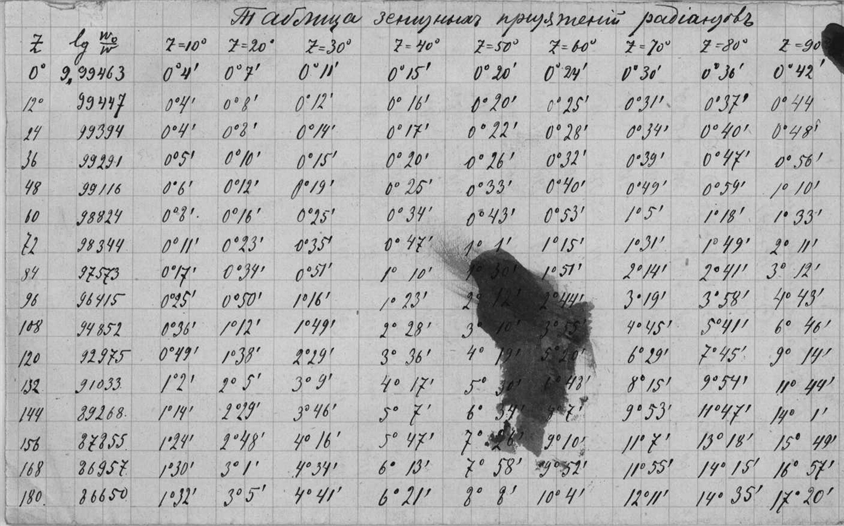 Таблица зенитных притяжений радіантовъ
Z lg w₀/w Z=10° Z=20° Z=30° Z=40° Z=50° Z=60° Z=70° Z=80° Z=90
0° 9,99463 0°4' 0°7' 0°11' 0°15' 0°20' 0°24' 0°30' 0°36' 0°42'
12° 99447 0°4' 0°8' 0°12' 0°16' 0°20' 0°25' 0°31' 0°37' 0°44
24 99394 0°4' 0°8' 0°14' 0°17' 0°22' 0°28' 0°34' 0°40' 0°48'
36 99291 0°5' 0°10' 0°15' 0°20' 0°26' 0°32' 0°39' 0°47' 0°56'
48 99116 0°6' 0°12' 0°19' 0°25' 0°33' 0°40' 0°49' 0°59' 1°10'
60 98824 0°8' 0°16' 0°25' 0°34' 0°43' 0°53' 1°5' 1°18' 1°33'
72 98344 0°11' 0°23' 0°35' 0°47' 1°1' 1°15' 1°31' 1°49' 2°11'
84 97573 0°17' 0°34' 0°51' 1°10' 1°30' 1°51' 2°14' 2°41' 3°12'
96 96415 0°25' 0°50' 1°16' 1°23' 2°12' 2°44' 3°19' 3°58' 4°43'
108 94852 0°36' 1°12' 1°49' 2°28' 3°10' 3°55' 4°45' 5°41' 6°46'
120 92975 0°49' 1°38' 2°29' 3°36' 4°19' 6°29' 7°45' 9°14'
132 91033 1°2' 2°5' 3°9' 4°17' 5°30' 8°15' 9°54' 11°44'
144 89268 1°14' 2°29' 3°46' 5°7' 6°34' 9°53' 11°47' 14°1'
156 87855 1°24' 2°48' 4°16' 5°47' 7°26' 9°10' 11°7' 13°18' 15°49'
168 86957 1°30' 3°1' 4°34' 6°13' 7°58' 9°52' 11°55' 14°15' 16°57'
180 86650 1°32' 3°5' 4°41' 6°21' 8°8' 10°4' 12°11' 14°35' 17°20'